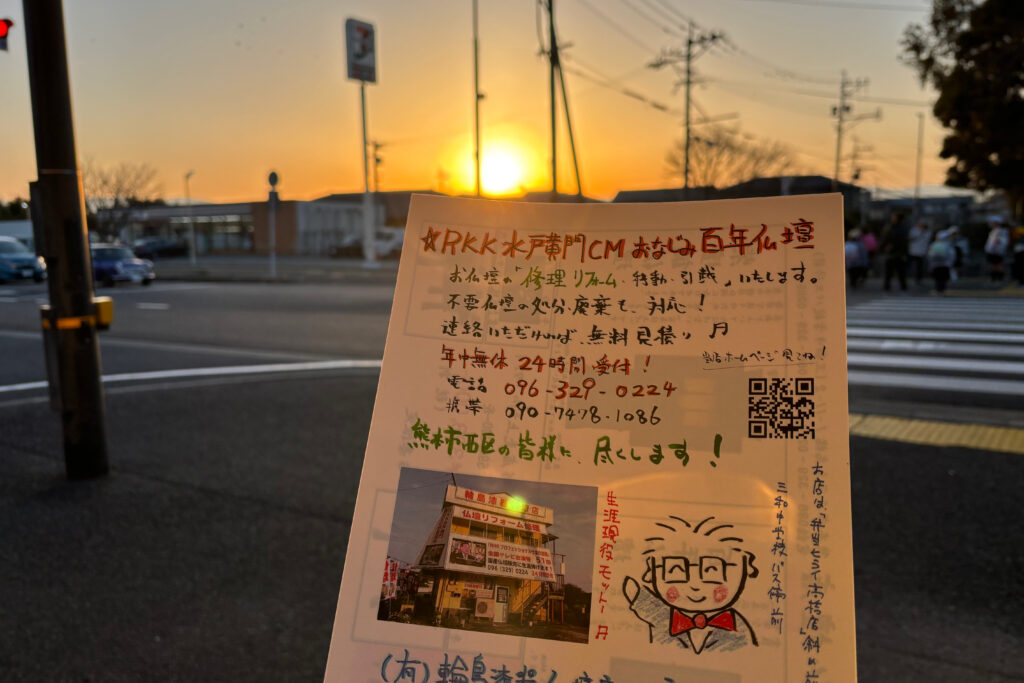 ☆RKK水戸黄門CMおなじみ百年仏壇
お仏壇の「修理リフォム・移動・引戝」いたします。
不要仏壇の処分・廃棄て、対応!
連絡いただければ、無料見積り
当店ホームページ見てね!
年中無休 24時間受付!
電話 096-329-0224
携帯 090-7478-1086
熊本市西区の皆様に、尽くします!
仏壇リフォーム修理
096(329)0224
生涯現役モットー
お店は、「弁当ヒライ高橋店」斜め前
三和中学校バス停前
(有)輪島漆